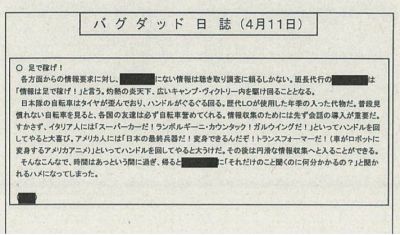 バグダッド日誌（4月11日）
○ 足で稼げ！
各方面からの情報要求に対し、にない情報は聴き取り調査に頼るしかない。班長代行のは
「情報は足で稼げ！」と言う。灼熱の炎天下、広いキャンプ・ヴィクトリー内を駆け回ることとなる。
日本隊の自転車はタイヤが歪んでおり、ハンドルがぐるぐる回る。歴代LOが使用した年季の入った代物だ。普段見
慣れない自転車を見ると、各国の友達は必ず自転車誉めてくれる。情報収集のためには先ず会話の導入が重要だ。
すかさず、イタリア人には「スーパーカーだ！ランボルギーニ・カウンタック！ガルウイングだ！」といってハンドルを回
してやると大喜び。アメリカ人には「日本の最終兵器だ！変身できるんだぞ！トランスフォーマーだ！（車がロボットに
変身するアメリカアニメ）」といってハンドルを回してやると大うけだ。その後は円滑な情報収集へと入ることができる。
そんなこんなで、時間はあっという間に過ぎ、帰ると に「それだけのこと聞くのに何分かかるの？」と聞か
れるハメになってしまった。